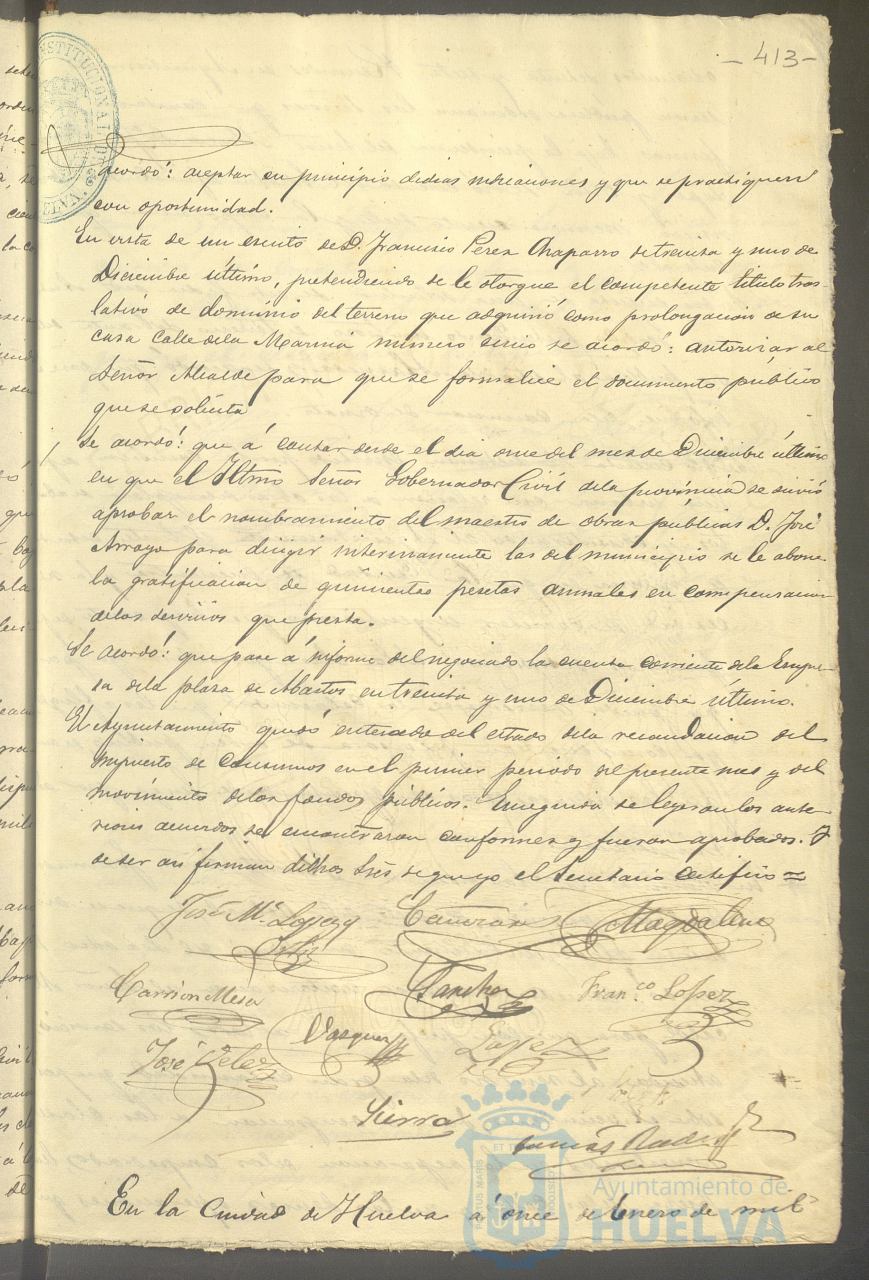 - 413 -
acordó: aceptar en principio dichas indicaciones y que se practiquen
con oportunidad.
En vista de un escrito de D. Francisco Perez Chaparro de treinta y uno de
Diciembre último, pretendiendo se le otorgue el competente titulo tras-
lativo de dominio del terreno que adquirió como prolongacion de su
casa calle de la Marina numero cinco se acordó: autorizar al
Señor Alcalde para que se formalice el documento público
que se solicita
Se acordó: que á contar desde el dia once del mes de Diciembre último
en que el Iltmo Señor Gobernador Civil de la provincia se sirvió
aprobar el nombramiento del maestro de obras públicas D. José
Arroyo para dirigir interinamente las del municipio se le abone
la gratificacion de quinientas pesetas anuales en compensacion
de los servicios que presta.
Se acordó: que pase á informe del negociado la cuenta corriente de la Empre-
sa de la plaza de Abastos en treinta y uno de Diciembre último.
El Ayuntamiento quedó enterado del estado de la recaudacion del
impuesto de consumos en el primer periodo del presente mes y del
movimiento de los fondos públicos. Enseguida se leyeron los ante-
riores acuerdos se encontraron conformes y fueron aprobados. Y
de ser asi firman dichos Sres de que yo el Secretario certifico =
José Mª Lopez Magdalena
Carrion Mesa Sanchez Fran.co Lopez
José Velez Vazquez Lopez
Sierra
Tomás
En la Ciudad de Huelva á once de Enero de mil
Ayuntamiento de
HUELVA